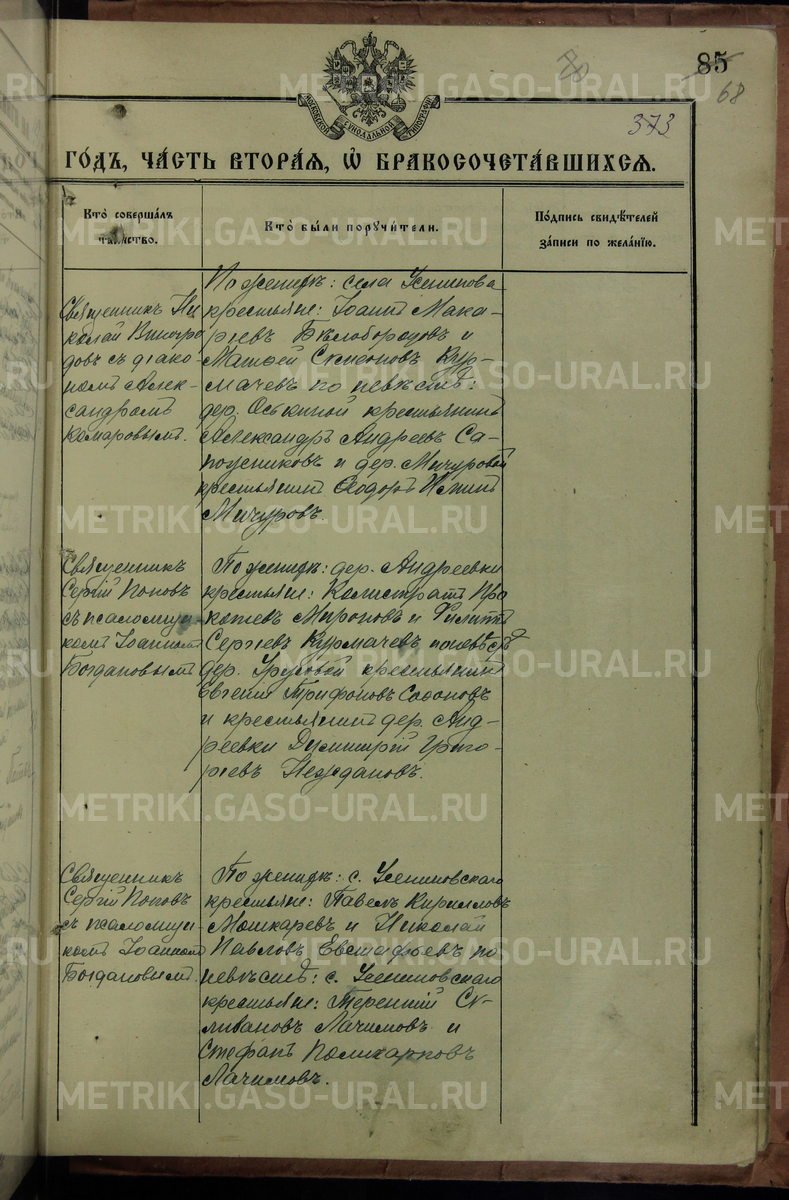 85
80
68
373
МОСКОВСКОЙ СѴНОДАЛЬНОЙ ТИПОГРАФІИ
ГО́ДЪ, ЧА́СТЬ ВТОРА́Я, Ѡ҆ БРАКОСОЧЕТА́ВШИХСЯ.
Кто̀ соверша́лъ
та́инство.
Кто̀ бы́ли поручи́тели.
По́дпись свидѣ́телей
за́писи по жела́нїю.
Священникъ Ни
колай Виногра
довъ съ діако
номъ Алек-
сандромъ
Комаровымъ.
По женихѣ: села Усениново
крестьяне: Іоаннъ Мака-
ріевъ Бѣлобородовъ и
Матѳей Симеоновъ Кур-
мачевъ по невѣстѣ:
дер. Оськиной крестьянинъ
Александръ Андреевъ Са-
пожниковъ и дер. Мичуровой
крестьянинъ Ѳеодоръ
Мичуровъ.
Священникъ
Сергій Поповъ
съ псаломщи-
комъ Іоанномъ
Богдановымъ
По женихѣ: дер. Андреевки
крестьяне: Калистратъ Про
копіевъ Мироновъ и Филиппъ
Сергіевъ Курмачевъ по невѣстѣ
дер. крестьянинъ
Евгеній Трифоновъ Сафоновъ
и крестьянинъ дер. Анд-
реевки Димитрій Григо-
ріевъ Неждановъ.
Священникъ
Сергій Поповъ
съ псаломщи-
комъ Іоанномъ
Богдановымъ.
По женихѣ: с. Усениновскаго
крестьяне: Павелъ Кирилловъ
Мошкаревъ и Николай
Павловъ Евстафьевъ по
невѣстѣ: с. Усениновскаго
крестьяне: Терентій Се-
ливановъ Лачимовъ и
Стефанъ Поликарповъ
Лачимовъ.
METRIKI.GASO-URAL.RU